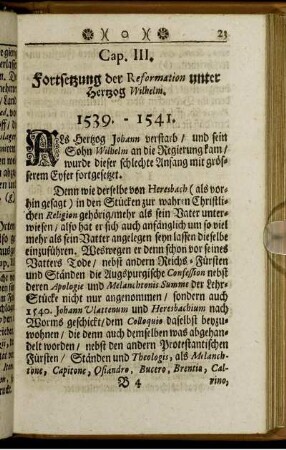 23
Cap. III.
Fortsetzung der Reformation unter
Hertzog Wilhelm.
1539. - 1541.
Als Hertzog Johann verstarb / und sein
Sohn Wilhelm an die Regierung kam /
wurde dieser schlechte Anfang mit grös-
serem Eyfer fortgesetzet.
Denn wie derselbe von Heresbach (als vor-
hin gesagt) in den Stücken zur wahren Christli-
chen Religion gehörig / mehr als sein Vater unter-
wiesen / also hat er sich auch anfänglich um so viel
mehr als sein Vatter angelegen seyn lassen dieselbe
einzuführen. Weswegen er denn schon vor seines
Vatters Tode / nebst andern Reichs-Fürsten
und Ständen die Augspurgische Confession nebst
deren Apologie und Melanchtonis Summe der Lehr-
Stücke nicht nur angenommen / sondern auch
1540. Johann Vlattenum und Heresbachium nach
Worms geschickt / dem Colloquio daselbst beyzu-
wohnen / die denn auch demselben was abgehan-
delt worden / nebst den andern Protestantischen
Fürsten / Ständen und Theologis, als Melanch-
tone, Capitone, Osiandro, Bucero, Brentio, Cal-
B 4
vino,